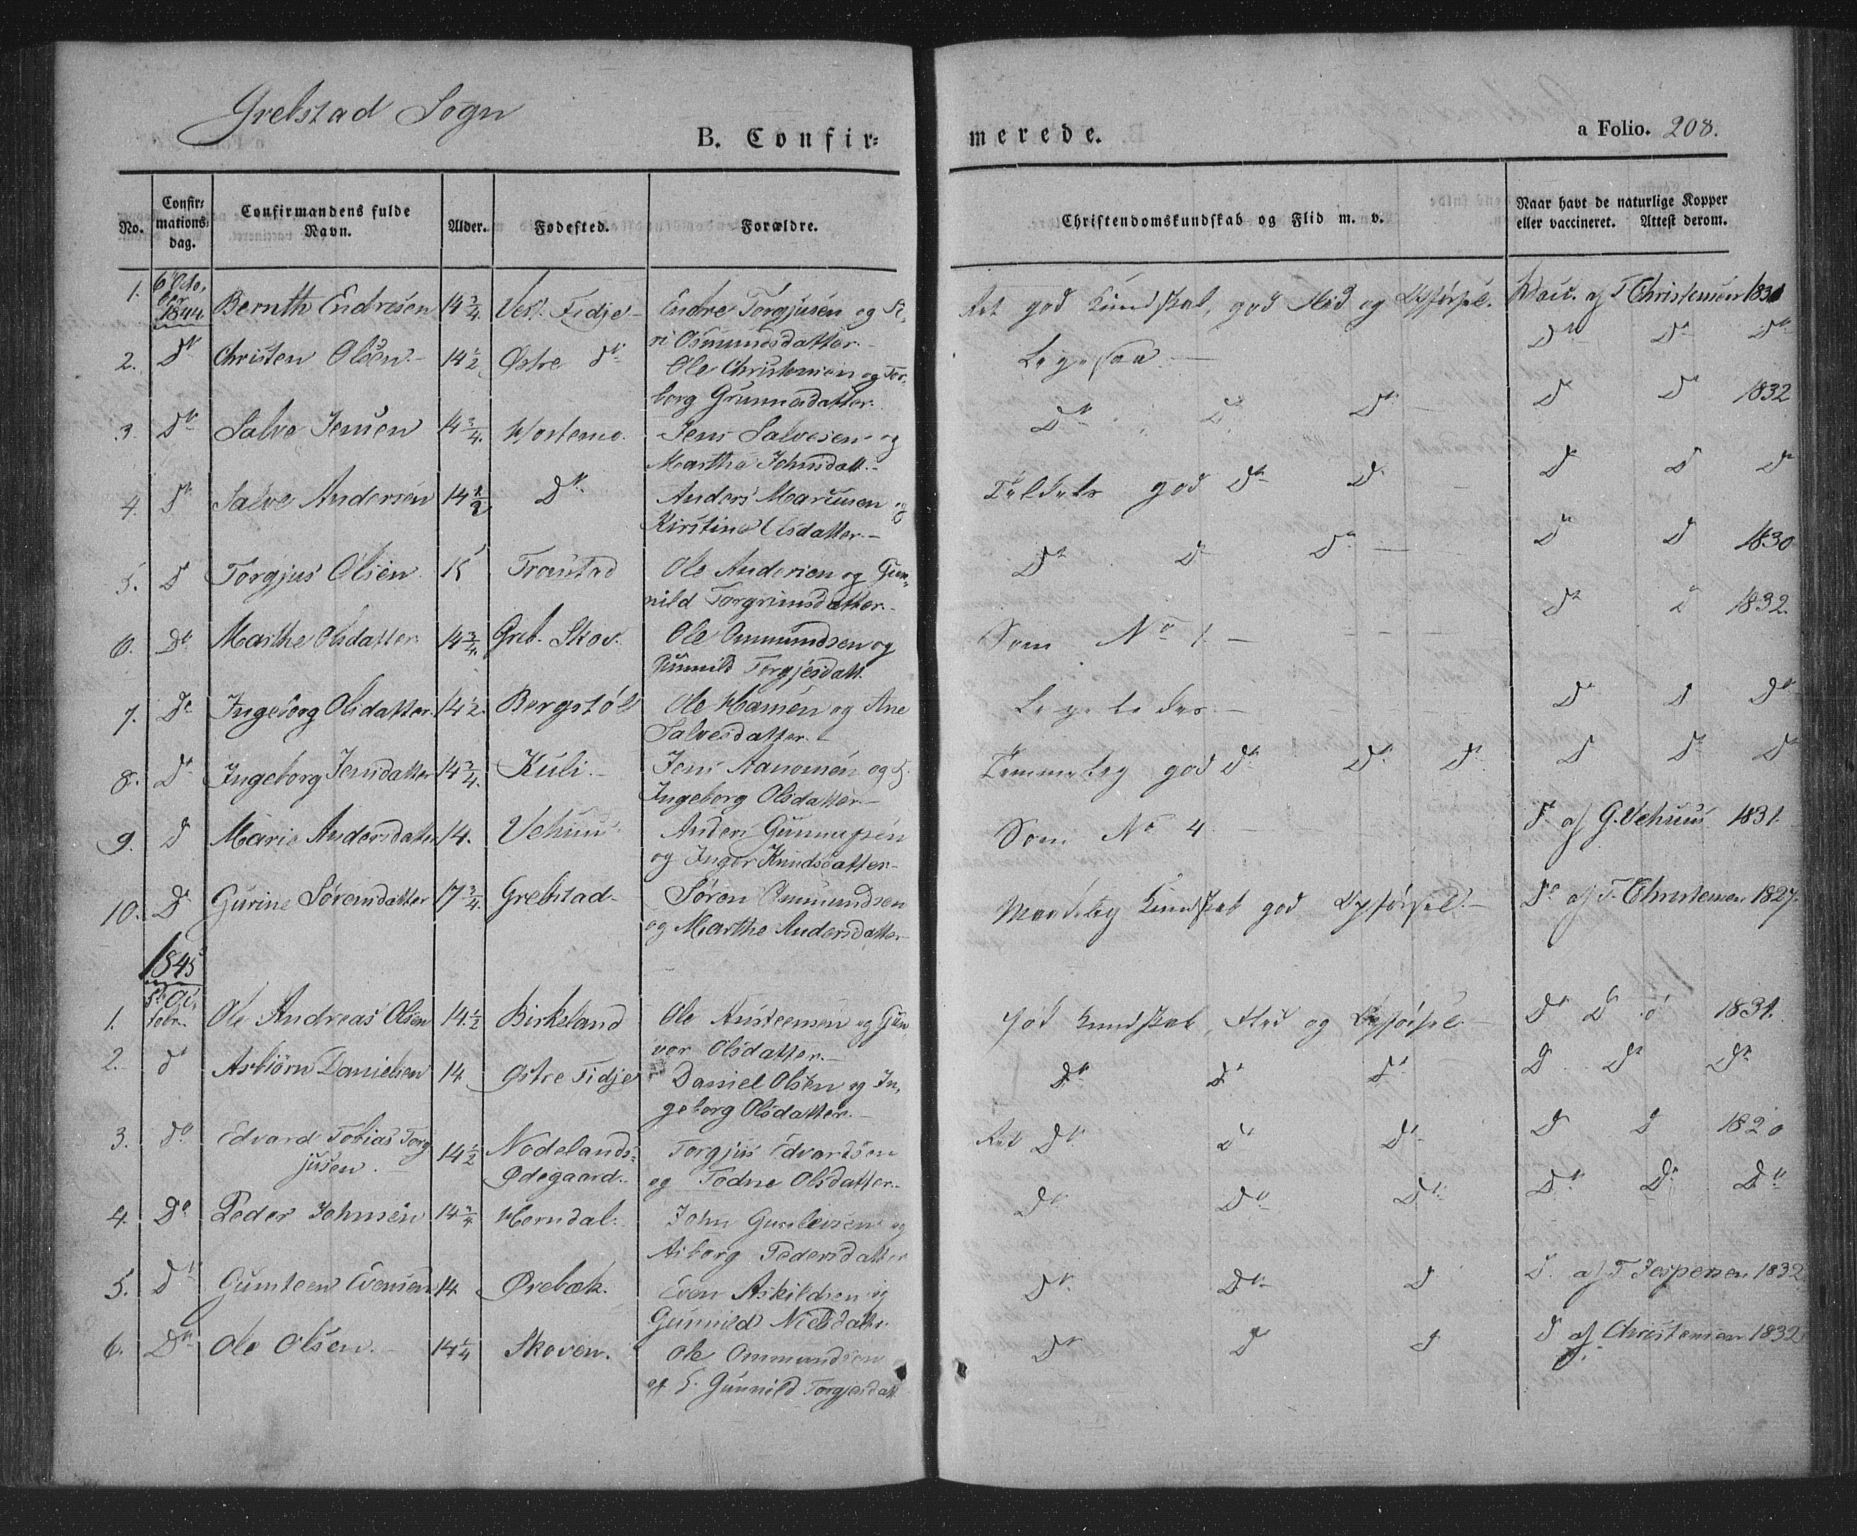 Grebstad Sogn
B. Confir=
merede.
a Folio. 208.
No.
Confir=
mations=
dag.
Confirmandens fulde
Navn.
Alder.
Fødested.
Forældre.
Christendomskundskab og Flid m. v.
Naar havt de naturlige Kopper
eller vaccineret. Attest derom.
1. 6 Octo.
ber
1844 Bernth Endresen 14 3/4. Vest. Fidje – Endre Torgjusen og Si-
ri Osmundsdatter.– Ret god Kundskab, god Flid og Opførsel. Vacc. af T Christensen 1830
2. Do Christen Olsen.– 14 1/2 Østre Do Ole Christensen og Tor-
borg Gunnesdatter. Ligesaa.– Do Do Do
3. Do Salve Jensen 14 3/4. Mostemo. Jens Salvesen og
Martha Johnsdatt.– Do D. Do – D D 1832
4. Do Salve Andersen 14 1/2 Do Anders Marcusen og
Kirstine Olsdatter.– Taldets god Do D. D D D
5. D Torgjus Olsen 15 Tronstad Ole Andersen og Gun-
nild Torgrimsdatter.– Do D Do – D D 1830
6. Do Marthe Olsdatter 14 3/4. Greb. Skov. Ole Ommundsen og
Gunnild Torgjesdatt. Som No 1.– Do D 1832.
7. Do Ingeborg Olsdatter. 14 1/2. Bergstøl Ole Hansen og Ane
Salvesdatter.– Ligeledes.– D D Do
8. D Ingeborg Jensdatter 14 3/4. Kuli.– Jens Aanonsen og H.
Ingeborg Olsdatter.– Temmelig god Do Do Do D Do D
9. D Marie Andersdatter 14. Vehuus Anders Gunnufsen
og Inger Knudsdatter.– Som No 4 D. af G. Vehuus 1831.
10. D Gurine Sørensdatter 17 3/4. Grebstad– Søren Ommundsen
og Marthe Andersdatter– Maadelig Kundskab god Opførsel.– Do af T. Christensen 1827.
1845
1. 5te Oc
tobr. Ole Andreas Olsen 14 1/2 Birkeland Ole Austensen og Gun-
vor Olsdatter.– God Kundskab, Flid og Opførsel – Do D 1831.
2. d Asbiørn Danielsen 14 Østre Fidje Daniel Olsen og In-
geborg Olsdatter.– Do Do Do D. Do Do
3. Do Edvard Tobias Torg
jusen.– 14 1/2 Nodelands=
Ødegaard.. Torgjus Edvardsen
og Todne Olsdatter.. Ret Do Do Do D D 1820
4. Do Peder Johnsen 14 3/4 Horndal. John Gunleivsen og
Asborg Pedersdatter Do Do Do Do D Do
5. Do Gunsteen Evensen 14 Ørebæk. Even Askildsen og
Gunnild Nielsdattr Do Do D D. af T Jespersen 1832
6. Do Ole Olsen.– 14 1/4 Skoven. Ole Ommundsen
og H. Gunnild Torgjesdatt Do D D D af Christensen 1832